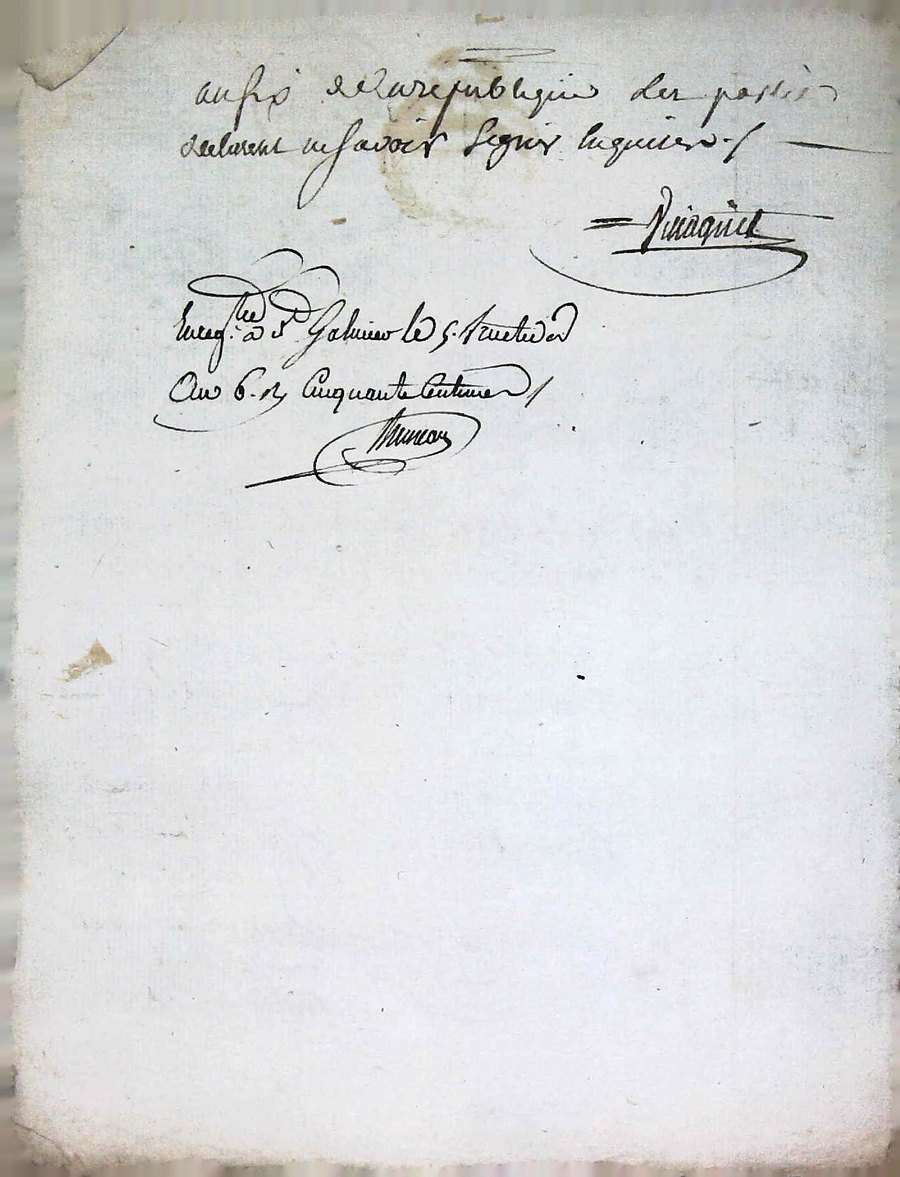 an six de la republique les parties
declarent ne savoir signer Enquiser
Enreg.tré a St Galmier le 5. fructidor
an 6. R. Cinquante Centimes